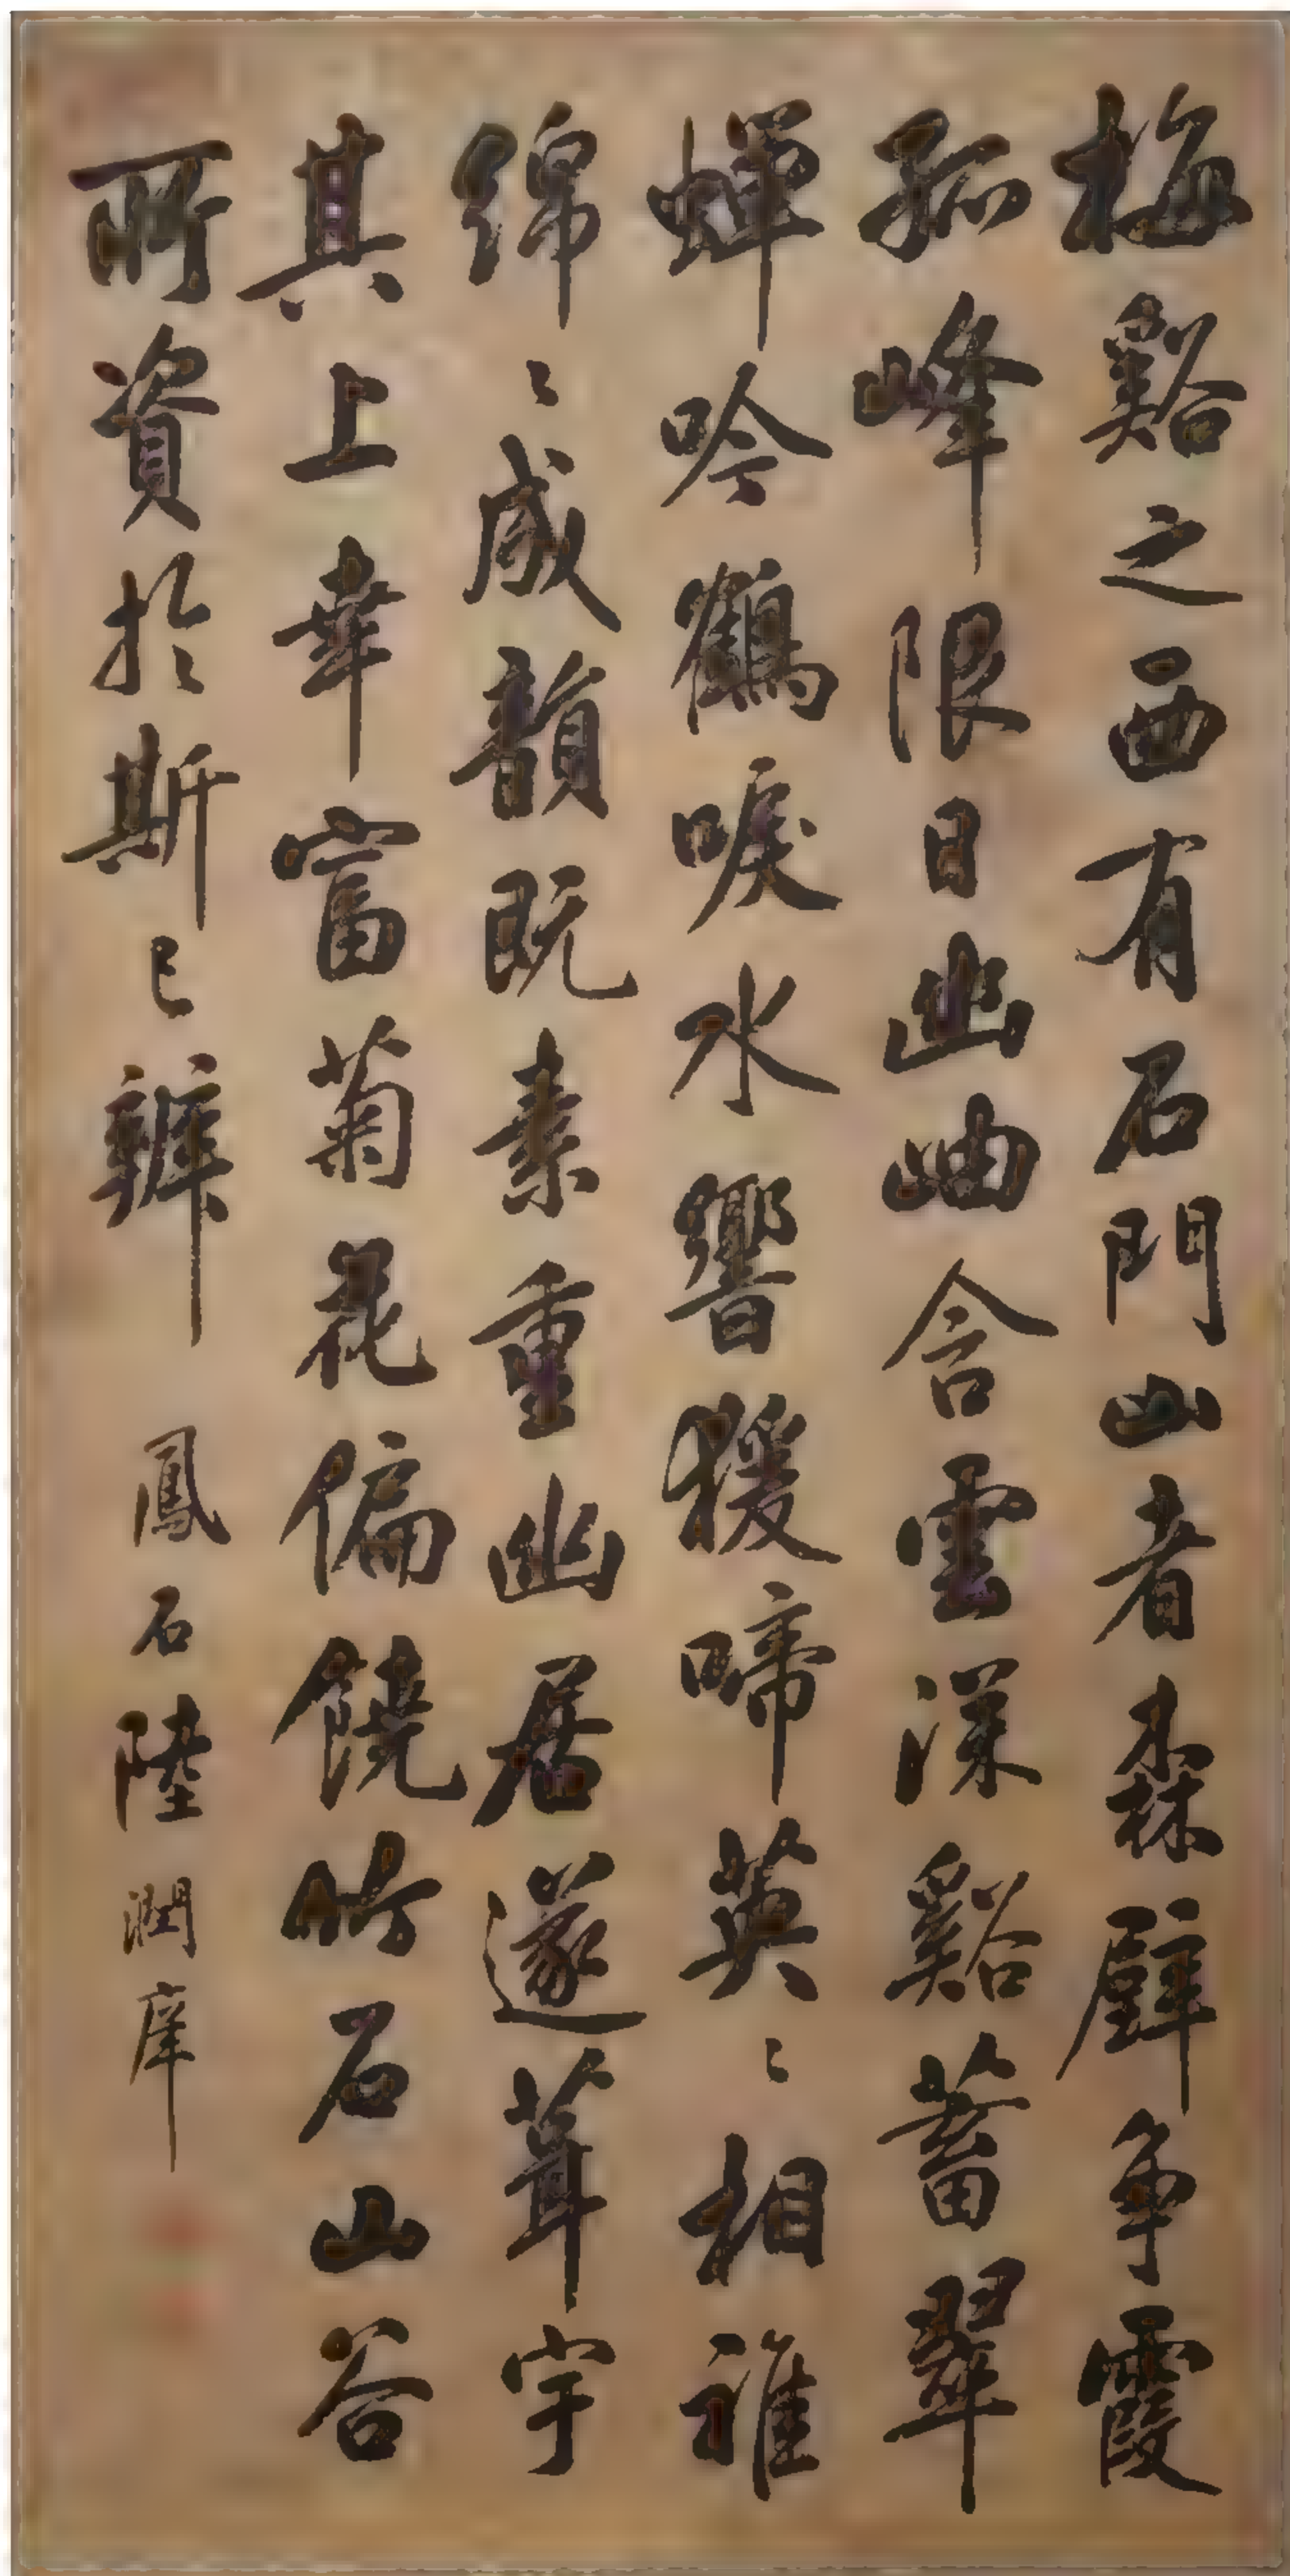 梅谿之西有石門山者森壁争霞
孤峰限日幽岫含雲深谿蓄翠
蟬吟鶴唳水響猨啼英〻相雜
綿〻成韻既素重幽居遂葺宇
其上幸富菊花偏饒竹石山谷
所資於斯已辦 鳳石陸潤庠